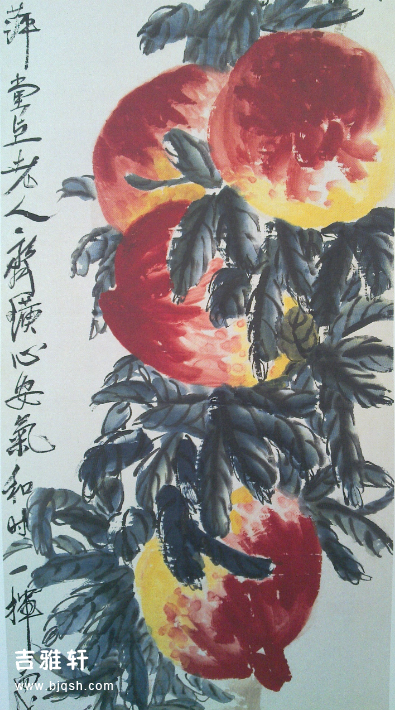 萍堂老人齊璜心安氣和時一揮
吉雅轩
www.bjqsh.com